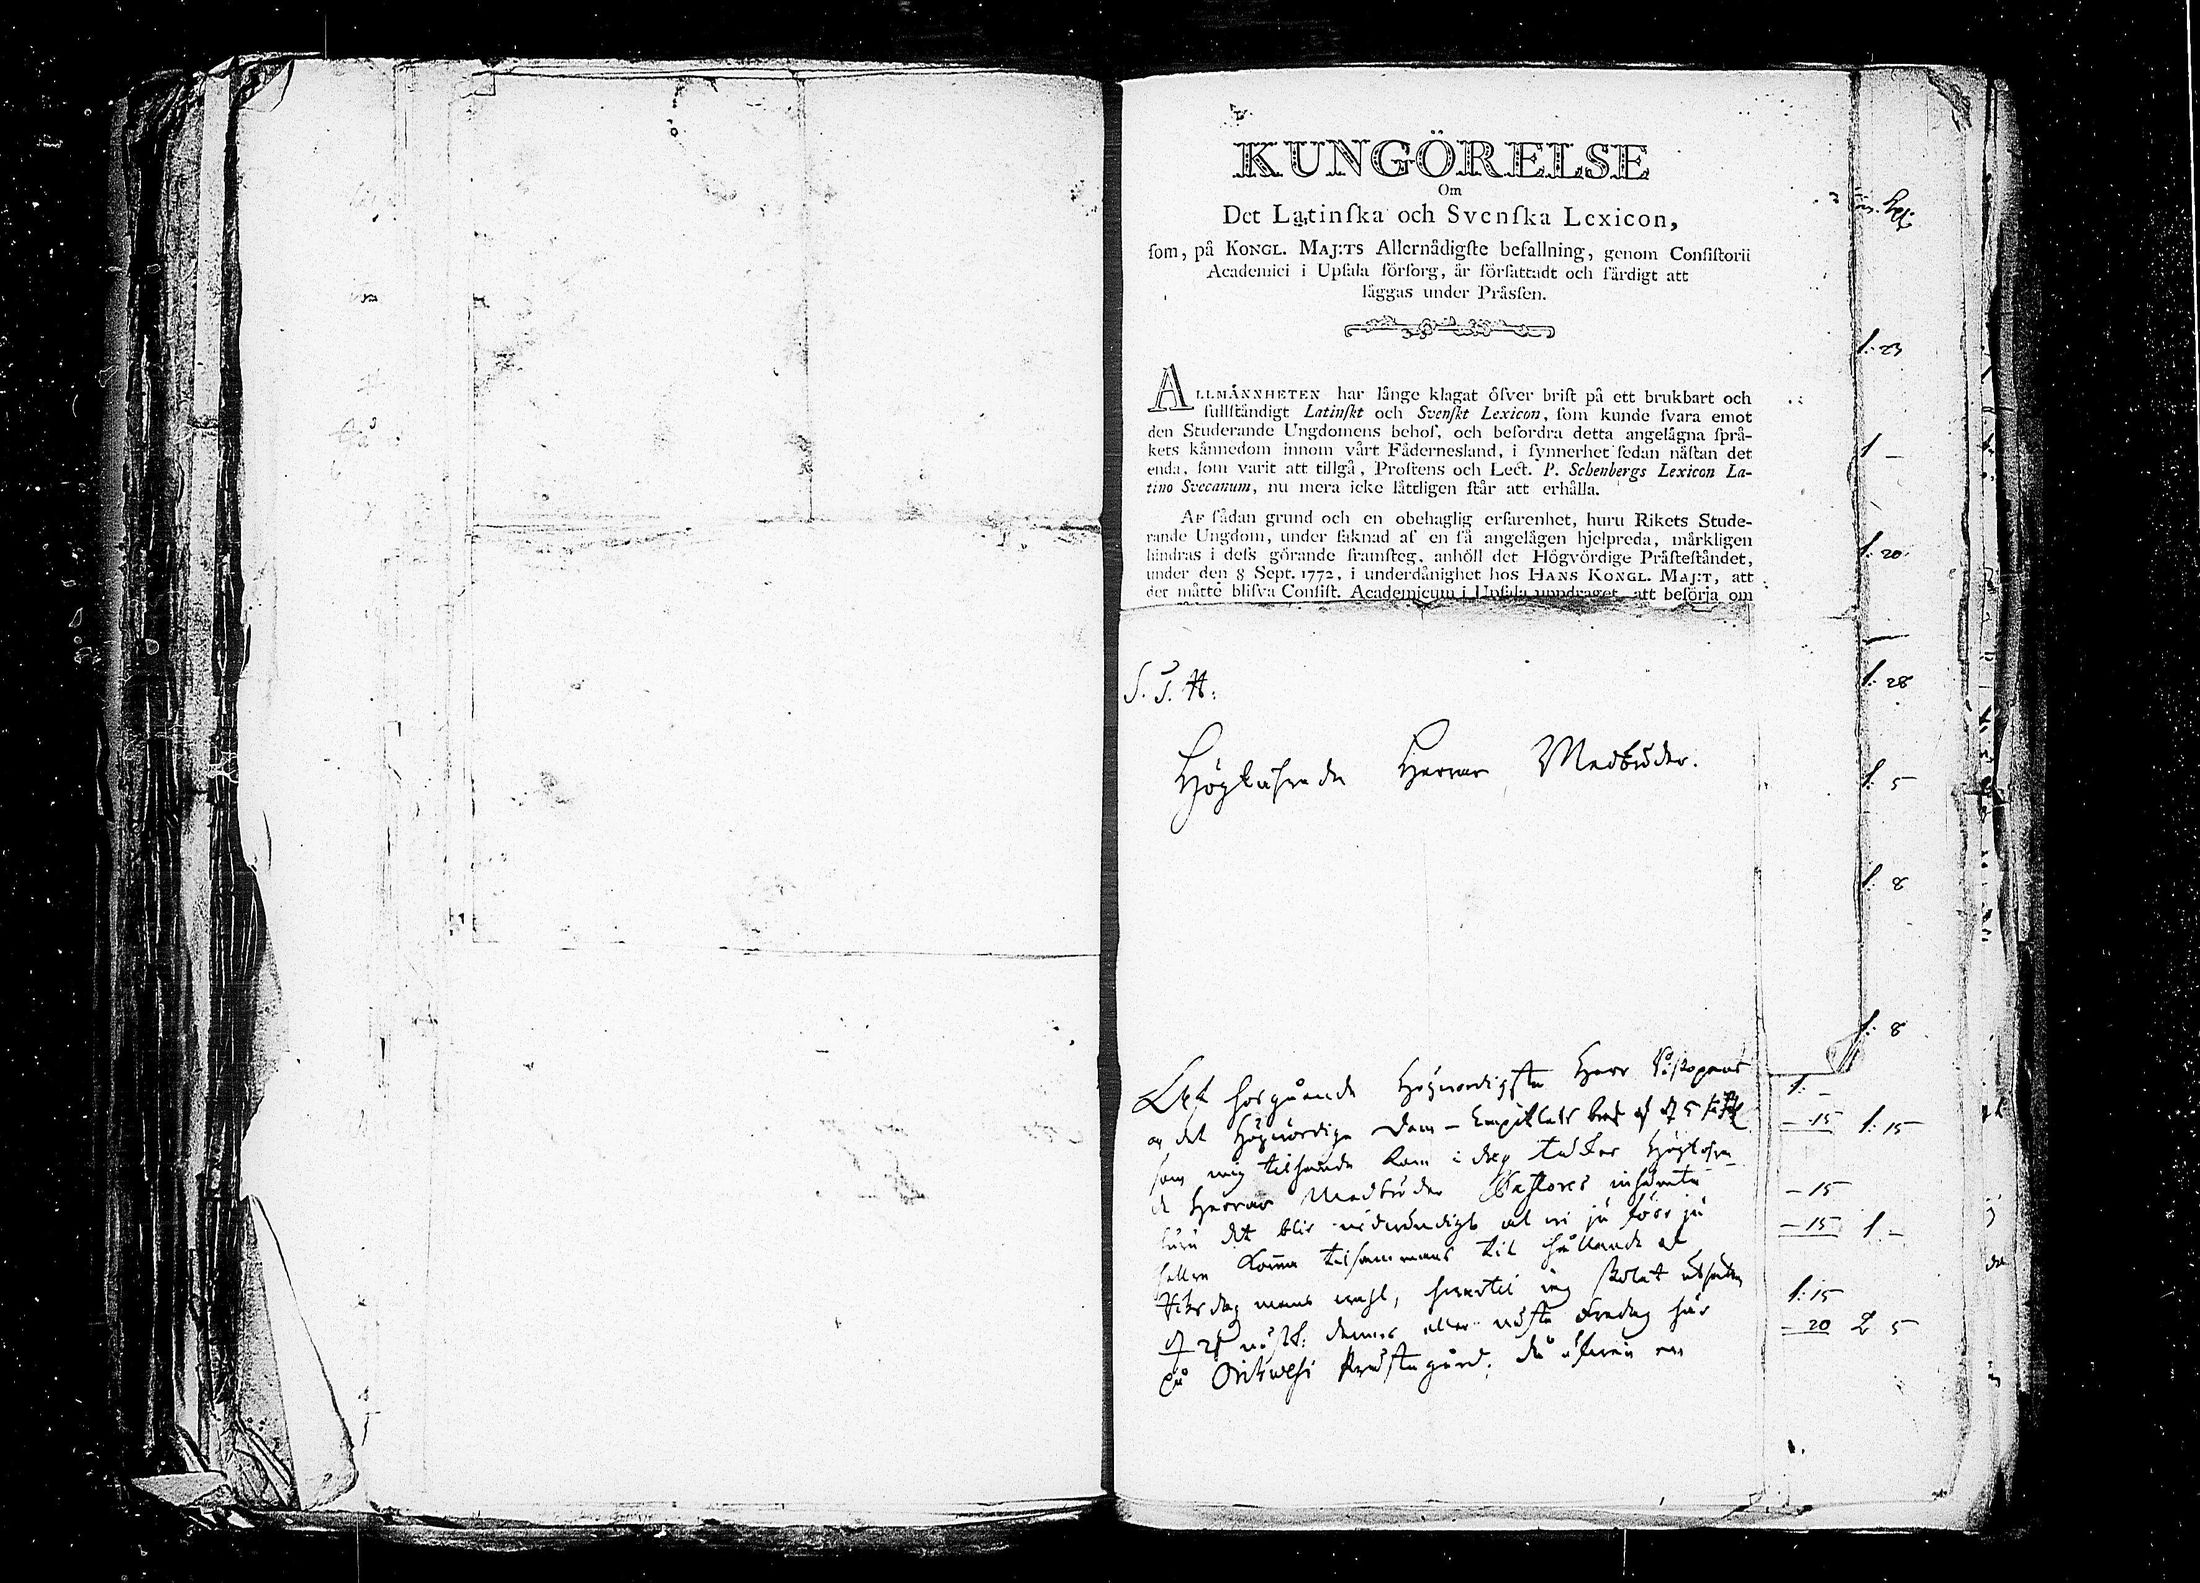 KUNGÖRELSE
Om
Det Latinſka och Svenſka Lexicon,
ſom, på KONGL. MAJ:TS Allernådigſte befallning, genom Conſiſtorii
Academici i Upſala förſorg, är författadt och färdigt att
läggas under Präsſen.
ALLMÄNNHETEN har länge klagat öfver briſt på ett brukbart och
fullſtändigt Latinſkt och Svenſkt Lexicon, ſom kunde ſvara emot
den Studerande Ungdomens behof, och befordra detta angelägna ſprå-
kets kännedom innom vårt Fädernesland, i ſynnerhet ſedan näſtan det
enda, ſom varit att tillgå, Proſtens och Lect. P. Schenbergs Lexicon La-
tino Svecanum, nu mera icke lättligen ſtår att erhålla.
AF ſådan grund och en obehaglig erfarenhet, huru Rikets Stude-
rande Ungdom, under ſaknad af en ſå angelägen hjelpreda, märkligen
hindras i deſs görande framſteg, anhöll det Högvördige Präſteſtåndet,
under den 8 Sept. 1772, i underdånighet hos HANS KONGL. MAJ:T, att
det måtte blifva Conſiſt. Academicum i Upſala uppdraget, att beſörja om
S. T. H:
Höglärde Herrar Medbröder.
Högwördigſte Herr Biskopens
og det Högwördige Dom-Capitlets bref af d 5
ſom mig tilhanda kom i dag
Herrar Medbröder Paſtores
det blir nödwändigt at wi ju förr ju
heller komma tilſammans til hållande af
Riksdagmans wahl, hwartil jag
d 28 denne eller näſta Onsdag här
på Prästegård, då äfwen en
1: 23
1 –
1: 20
1: 28
1: 5
1: 8
1: 8
1: –
– 15 1: 15
– 15
– 15 1 –
1: 15
– 20 2 5